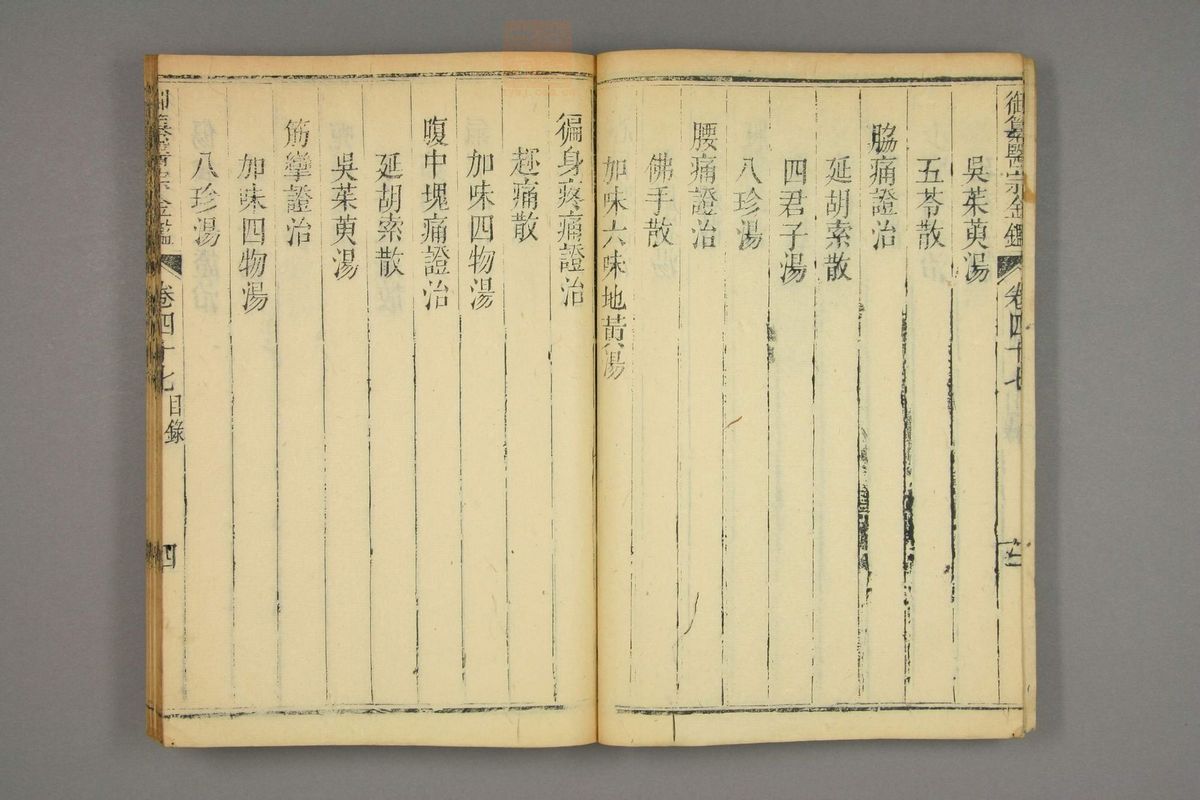 御纂醫宗金鑑 卷四十七
吳茱萸湯
五苓散
脇痛證治
延胡索散
四君子湯
八珍湯
腰痛證治
佛手散
加味六味地黃湯
徧身疼痛證治
趂痛散
加味四物湯
腹中塊痛證治
延胡索散
吳茱萸湯
筋攣證治
加味四物湯
八珍湯
御纂醫宗金鑑 卷四十七 目錄 四